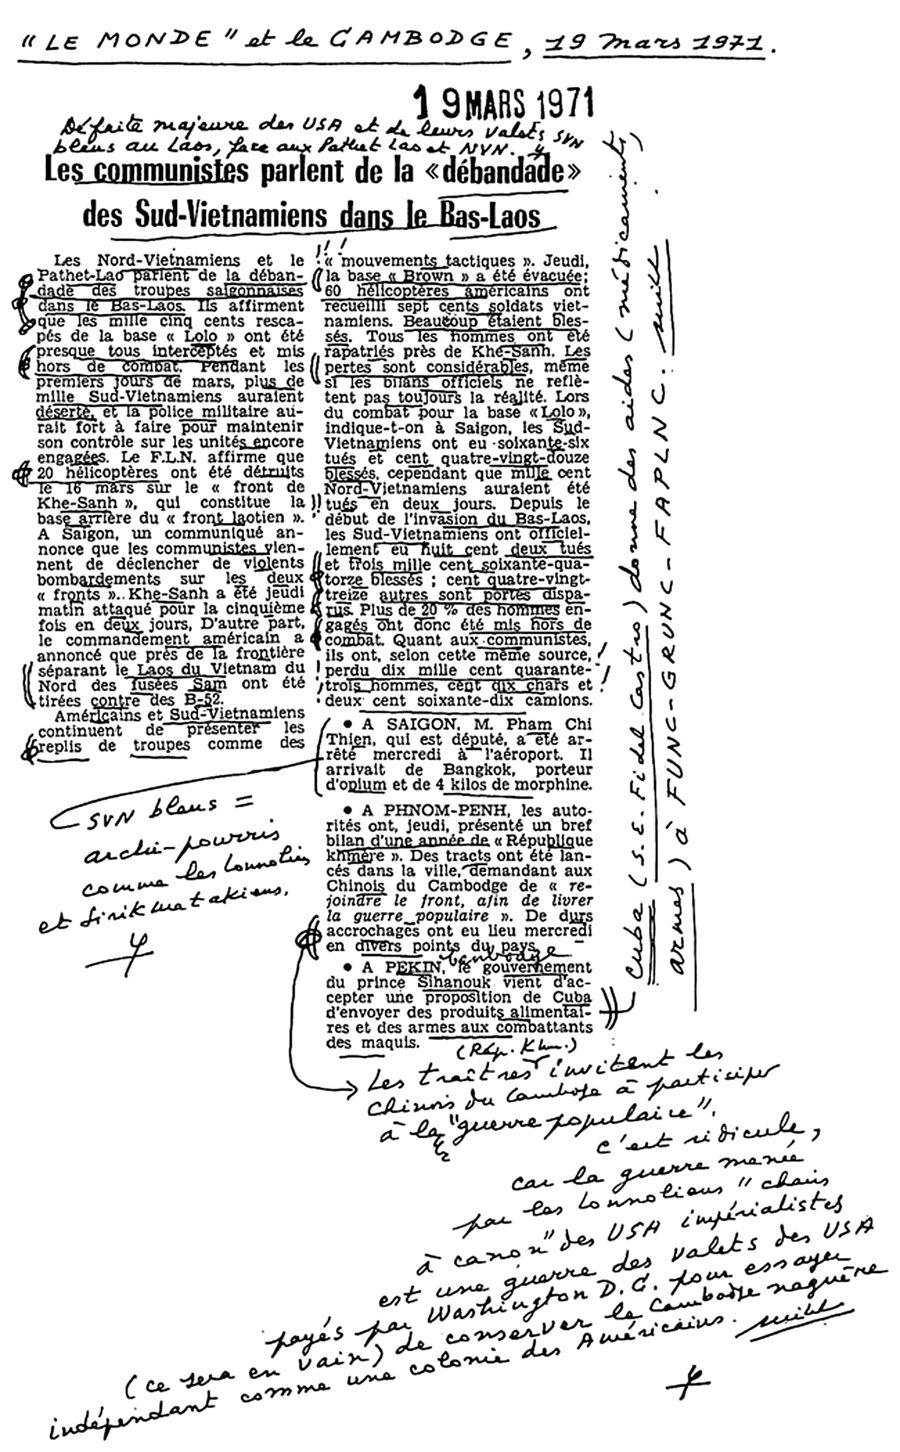 "LE MONDE" et le CAMBODGE, 19 mars 1971.
19 MARS 1971
Défaite majeure des USA et de leurs valets SVN
bleus au Laos, face aux Pathet Lao et NVN.
Les communistes parlent de la «débandade»
des Sud-Vietnamiens dans le Bas-Laos
Les Nord-Vietnamiens et le
Pathet-Lao parlent de la déban-
dade des troupes saïgonnaises
dans le Bas-Laos. Ils affirment
que les mille cinq cents resca-
pés de la base « Lolo » ont été
presque tous interceptés et mis
hors de combat. Pendant les
premiers jours de mars, plus de
mille Sud-Vietnamiens auraient
déserté, et la police militaire au-
rait fort à faire pour maintenir
son contrôle sur les unités encore
engagées. Le F.L.N. affirme que
20 hélicoptères ont été détruits
le 16 mars sur le « front de
Khe-Sanh », qui constitue la
base arrière du « front laotien ».
A Saïgon, un communiqué an-
nonce que les communistes vien-
nent de déclencher de violents
bombardements sur les deux
« fronts ». Khe-Sanh a été jeudi
matin attaqué pour la cinquième
fois en deux jours. D'autre part,
le commandement américain a
annoncé que près de la frontière
séparant le Laos du Vietnam du
Nord des fusées Sam ont été
tirées contre des B-52.
Américains et Sud-Vietnamiens
continuent de présenter les
replis de troupes comme des
!!
« mouvements tactiques ». Jeudi,
la base « Brown » a été évacuée;
60 hélicoptères américains ont
recueilli sept cents soldats viet-
namiens. Beaucoup étaient bles-
sés. Tous les hommes ont été
rapatriés près de Khe-Sanh. Les
pertes sont considérables, même
si les bilans officiels ne reflè-
tent pas toujours la réalité. Lors
du combat pour la base «Lolo»,
indique-t-on à Saïgon, les Sud-
Vietnamiens ont eu soixante-six
tués et cent quatre-vingt-douze
blessés, cependant que mille cent
Nord-Vietnamiens auraient été
tués en deux jours. Depuis le
début de l'invasion du Bas-Laos,
les Sud-Vietnamiens ont officiel-
lement eu huit cent deux tués
et trois mille cent soixante-qua-
torze blessés ; cent quatre-vingt-
treize autres sont portés dispa-
rus. Plus de 20 % des hommes en-
gagés ont donc été mis hors de
combat. Quant aux communistes,
ils ont, selon cette même source,
perdu dix mille cent quarante-
trois hommes, cent dix chars et
deux cent soixante-dix camions.
● A SAIGON, M. Pham Chi
Thien, qui est député, a été ar-
rêté mercredi à l'aéroport. Il
arrivait de Bangkok, porteur
d'opium et de 4 kilos de morphine.
● A PHNOM-PENH, les auto-
rités ont, jeudi, présenté un bref
bilan d'une année de « République
khmère ». Des tracts ont été lan-
cés dans la ville, demandant aux
Chinois du Cambodge de « re-
joindre le front, afin de livrer
la guerre populaire ». De durs
accrochages ont eu lieu mercredi
en divers points du pays.
cambodge
● A PEKIN, le gouvernement
du prince Sihanouk vient d'ac-
cepter une proposition de Cuba
d'envoyer des produits alimentai-
res et des armes aux combattants
des maquis.
SVN bleus =
archi-pourris
comme les lonnoliens
et sirikmatakiens.
Cuba (S.E. Fidel Castro) donne des aides (médicaments,
armes) à FUNC-GRUNC-FAPLNC.
(Rép. Khm.)
Les traîtres invitent les
chinois du Cambodge à participer
à la "guerre populaire".
c'est ridicule,
car la guerre menée
par les lonnoliens "chair
à canon" des USA impérialistes
est une guerre des valets des USA
payés par Washington D.C. pour essayer
(ce sera en vain) de conserver le Cambodge naguère
indépendant comme une colonie des Américains.